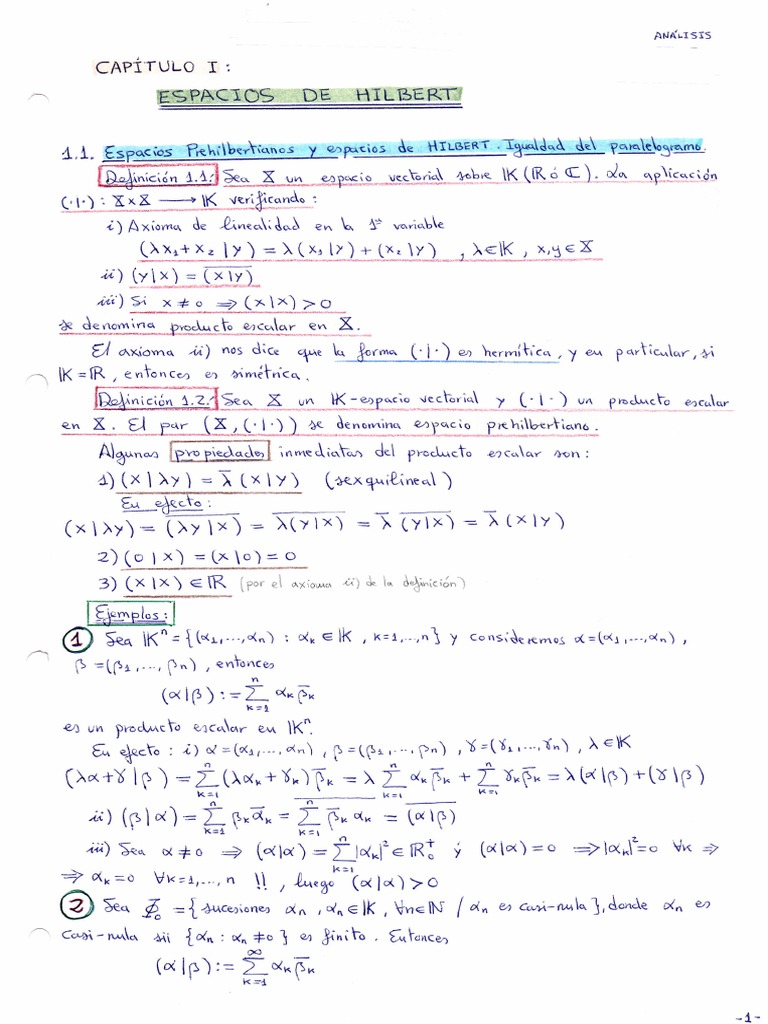 ANÁLISIS
CAPÍTULO I:
ESPACIOS DE HILBERT
1.1. Espacios Prehilbertianos y espacios de HILBERT. Igualdad del paralelogramo.
Definición 1.1: Sea X un espacio vectorial sobre K (R ó C). La aplicación
(·|·): X×X ⟶ K verificando:
i) Axioma de linealidad en la 1ª variable
(λx₁+x₂|y) = λ(x₁|y)+(x₂|y) , λ∈K , x,y∈X
ii) (y|x) = \overline{(x|y)}
iii) Si x≠0 ⇒ (x|x)>0
se denomina producto escalar en X.
El axioma ii) nos dice que la forma (·|·) es hermítica, y en particular, si
K=R, entonces es simétrica.
Definición 1.2: Sea X un K-espacio vectorial y (·|·) un producto escalar
en X. El par (X,(·|·)) se denomina espacio prehilbertiano.
Algunas propiedades inmediatas del producto escalar son:
1) (x|λy) = \overline{λ}(x|y) (sexquilineal)
En efecto:
(x|λy) = \overline{(λy|x)} = \overline{λ(y|x)} = \overline{λ} \overline{(y|x)} = \overline{λ}(x|y)
2) (0|x) = (x|0) = 0
3) (x|x)∈R (por el axioma ii) de la definición)
Ejemplos:
1 Sea Kⁿ={(α₁,...,αₙ) : αₖ∈K , k=1,...,n} y consideremos α=(α₁,...,αₙ),
β=(β₁,...,βₙ), entonces
(α|β) := ∑_{k=1}^{n} αₖ\overline{β}ₖ
es un producto escalar en Kⁿ.
En efecto: i) α=(α₁,...,αₙ) , β=(β₁,...,βₙ) , γ=(γ₁,...,γₙ) , λ∈K
(λα+γ|β) = ∑_{k=1}^{n} (λαₖ+γₖ)\overline{β}ₖ = λ ∑_{k=1}^{n} αₖ\overline{β}ₖ + ∑_{k=1}^{n} γₖ\overline{β}ₖ = λ(α|β)+(γ|β)
ii) (β|α) = ∑_{k=1}^{n} βₖ\overline{α}ₖ = \overline{∑_{k=1}^{n} \overline{β}ₖαₖ} = \overline{(α|β)}
iii) Sea α≠0 ⇒ (α|α) = ∑_{k=1}^{n} |αₖ|² ∈ R₀⁺ y (α|α)=0 ⇒ |αₖ|²=0 ∀k ⇒
⇒ αₖ=0 ∀k=1,...,n !! , luego (α|α)>0
2 Sea Φ₀={sucesiones αₙ, αₙ∈K, ∀n∈N / αₙ es casi-nula}, donde αₙ es
casi-nula sii {αₙ : αₙ≠0} es finito. Entonces
(α|β) := ∑_{k=1}^{∞} αₖ\overline{β}ₖ
-1-